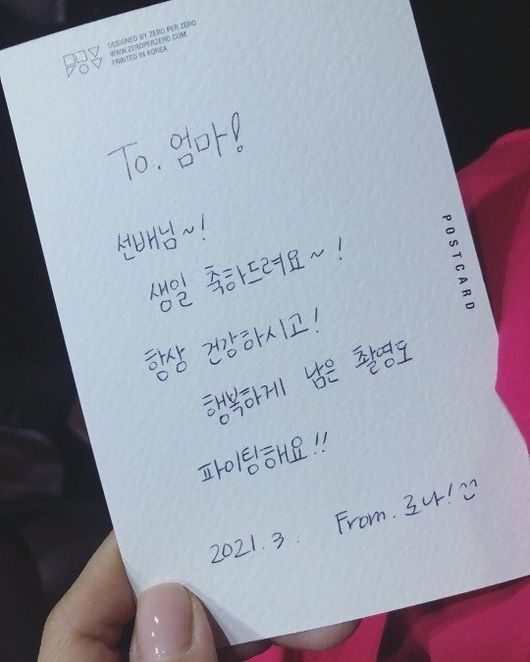 DESIGNED BY ZERO PER ZERO
WWW.ZEROPERZERO.COM
PRINTED IN KOREA
To. 엄마!
선배님~!
생일 축하드려요~!
항상 건강하시고!
행복하게 남은 촬영도
파이팅해요!!
2021. 3. From. 로나!
POSTCARD